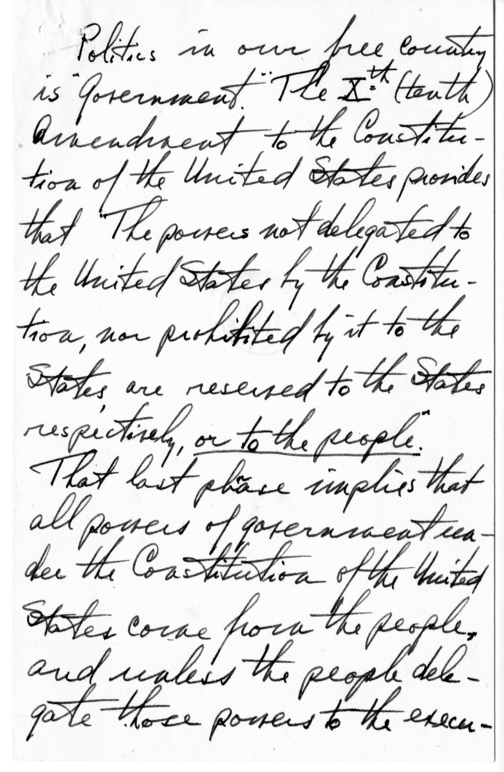 Politics in our free country
is "Government." The X.th (tenth)
Amendment to the Constitu-
tion of the United States provides
that "The powers not delegated to
the United States by the Constitu-
tion, nor prohibited by it to the
States, are reserved to the States
respectively, or to the people."
That last phase implies that
all powers of government un-
der the Constitution of the United
States come from the people,
and unless the people dele-
gate those powers to the execu-